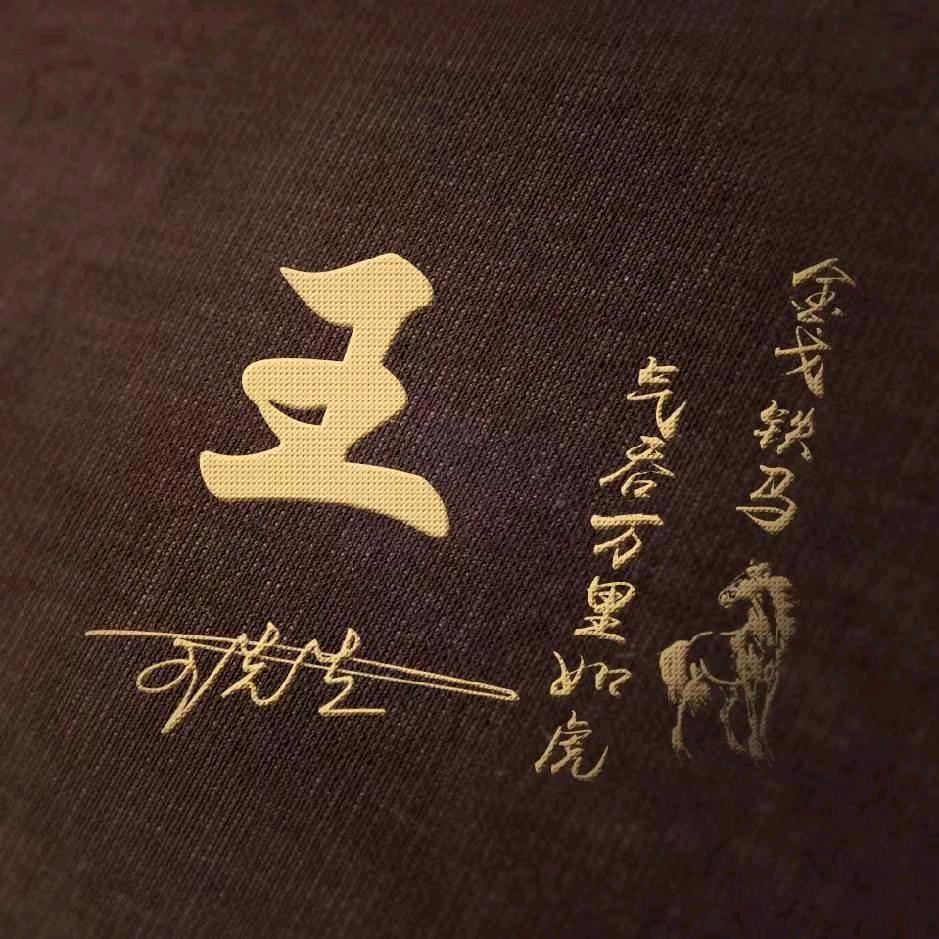 王
王先生
金戈铁马
气吞万里如虎